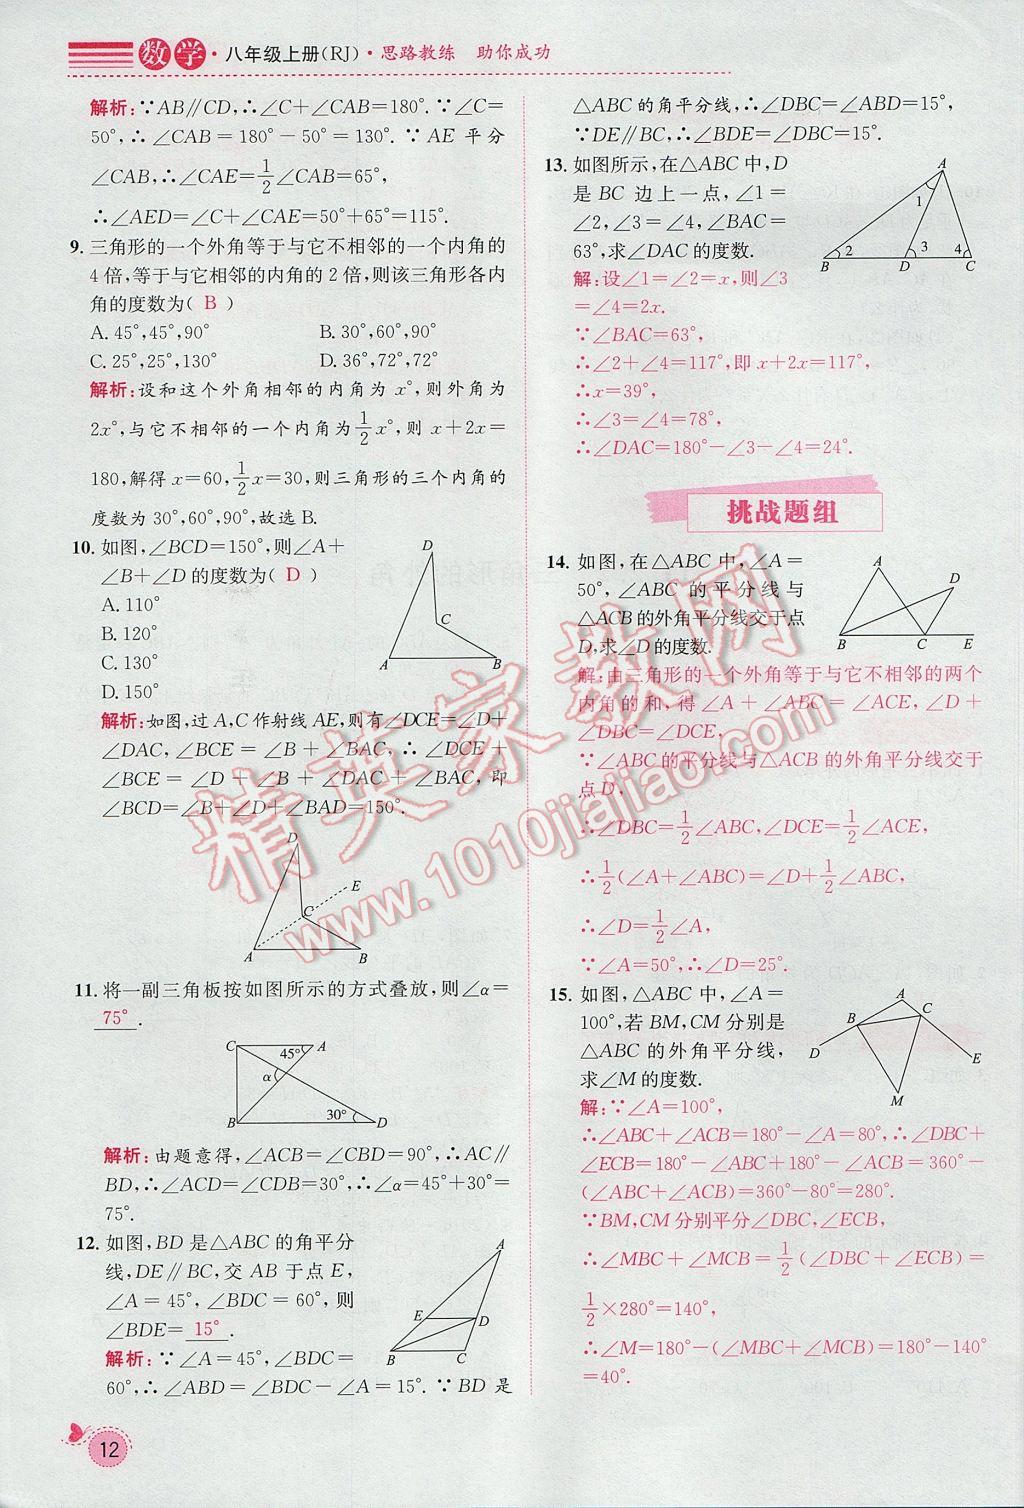 数学·八年级上册(RJ)·思路教练 助你成功
解析:∵AB∥CD,∴∠C+∠CAB=180°.∵∠C=
50°,∴∠CAB=180°-50°=130°.∵AE平分
∠CAB,∴∠CAE=1/2∠CAB=65°,
∴∠AED=∠C+∠CAE=50°+65°=115°.
9. 三角形的一个外角等于与它不相邻的一个内角的
4倍,等于与它相邻的内角的2倍,则该三角形各内
角的度数为( B )
A.45°,45°,90° B.30°,60°,90°
C.25°,25°,130° D.36°,72°,72°
解析:设和这个外角相邻的内角为x°,则外角为
2x°,与它不相邻的一个内角为1/2x°,则x+2x=
180,解得x=60,1/2x=30,则三角形的三个内角的
度数为30°,60°,90°,故选B.
10. 如图,∠BCD=150°,则∠A+
∠B+∠D的度数为( D )
A.110°
B.120°
C.130°
D.150°
D
C
A
B
解析:如图,过A,C作射线AE,则有∠DCE=∠D+
∠DAC,∠BCE=∠B+∠BAC,∴∠DCE+
∠BCE=∠D+∠B+∠DAC+∠BAC,即
∠BCD=∠B+∠D+∠BAD=150°.
D
E
C
A
B
11. 将一副三角板按如图所示的方式叠放,则∠α=
75°.
C
45°
A
α
B
30°
D
解析:由题意得,∠ACB=∠CBD=90°,∴AC∥
BD,∴∠ACD=∠CDB=30°,∴∠α=45°+30°=
75°.
12. 如图,BD是△ABC的角平分
线,DE∥BC,交AB于点E,
∠A=45°,∠BDC=60°,则
∠BDE=15°.
A
E
D
B
C
解析:∵∠A=45°,∠BDC=
60°,∴∠ABD=∠BDC-∠A=15°.∵BD是
12
△ABC的角平分线,∴∠DBC=∠ABD=15°,
∵DE∥BC,∴∠BDE=∠DBC=15°.
13. 如图所示,在△ABC中,D
是BC边上一点,∠1=
∠2,∠3=∠4,∠BAC=
63°,求∠DAC的度数.
A
1
2
3
4
B
D
C
解:设∠1=∠2=x,则∠3
=∠4=2x.
∵∠BAC=63°,
∴∠2+∠4=117°,即x+2x=117°,
∴x=39°,
∴∠3=∠4=78°,
∴∠DAC=180°-∠3-∠4=24°.
挑战题组
14. 如图,在△ABC中,∠A=
50°,∠ABC的平分线与
△ACB的外角平分线交于点
D,求∠D的度数.
A
D
B
C
E
解:由三角形的一个外角等于与它不相邻的两个
内角的和,得∠A+∠ABC=∠ACE,∠D+
∠DBC=∠DCE.
∵∠ABC的平分线与△ACB的外角平分线交于
点D,
∴∠DBC=1/2∠ABC,∠DCE=1/2∠ACE,
∴1/2(∠A+∠ABC)=∠D+1/2∠ABC,
∴∠D=1/2∠A,
∵∠A=50°,∴∠D=25°.
15. 如图,△ABC中,∠A=
100°,若BM,CM分别是
△ABC的外角平分线,
求∠M的度数.
A
B
C
D
E
M
解:∵∠A=100°,
∴∠ABC+∠ACB=180°-∠A=80°,∴∠DBC+
∠ECB=180°-∠ABC+180°-∠ACB=360°-
(∠ABC+∠ACB)=360°-80°=280°.
∵BM,CM分别平分∠DBC,∠ECB,
∴∠MBC+∠MCB=1/2(∠DBC+∠ECB)=
1/2×280°=140°,
∴∠M=180°-(∠MBC+∠MCB)=180°-140°
=40°.
精英家教网
www.1010jiajiao.com